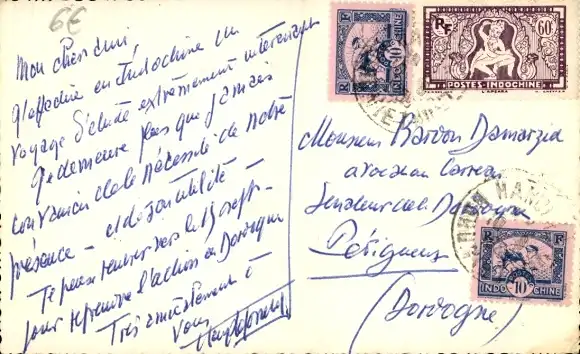 6€
Mon cher ami,
J'effectue en Indochine un
voyage d'étude extrêmement intéressant
Je demeure plus que jamais
convaincu de la nécessité de notre
présence – et de son utilité –
Je pense rentrer vers le 15 sept.
pour reprendre l'action en Dordogne
Très amicalement à
vous
RF
60c
POSTES-INDOCHINE
RF
10c
INDOCHINE
VIETNAM
Monsieur Bardon Damarzid
avocat au barreau
Sénateur de la Dordogne
Périgueux
(Dordogne)
HANOI
RF
INDOCHINE
10c